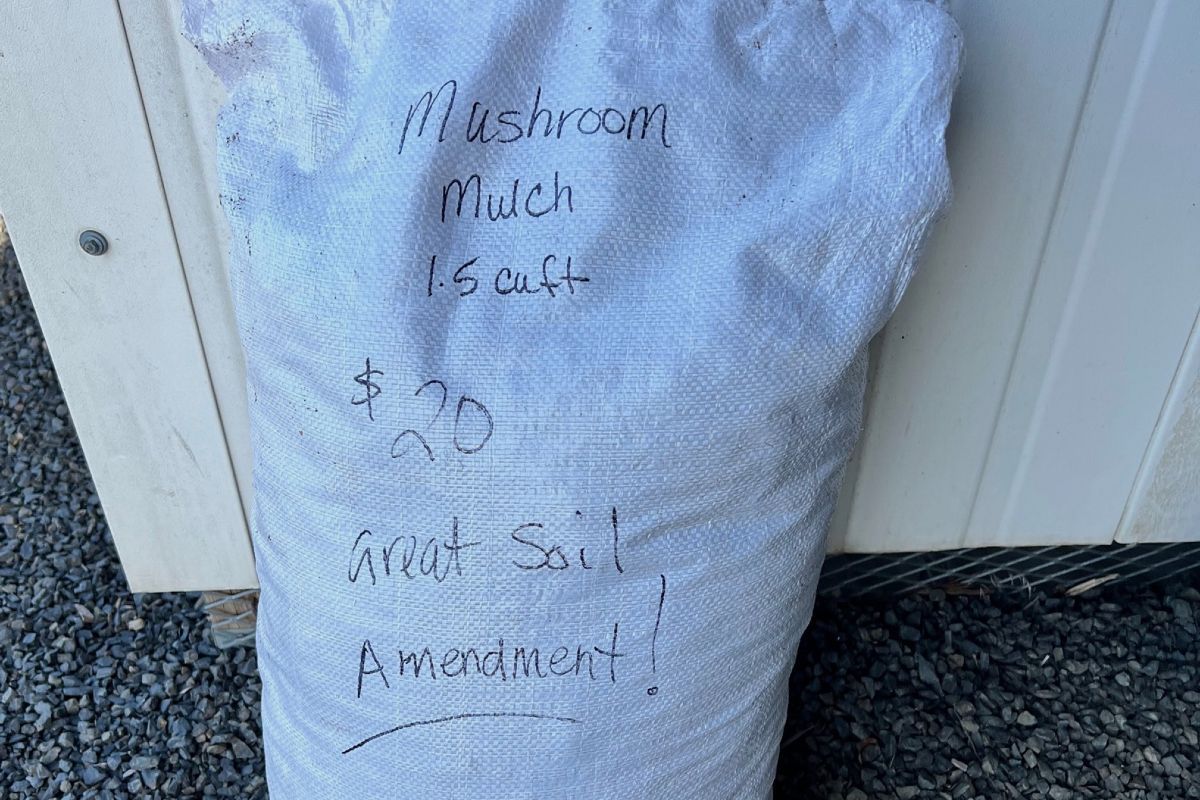 Mushroom
Mulch
1.5 cuft
$20
Great Soil
Amendment!